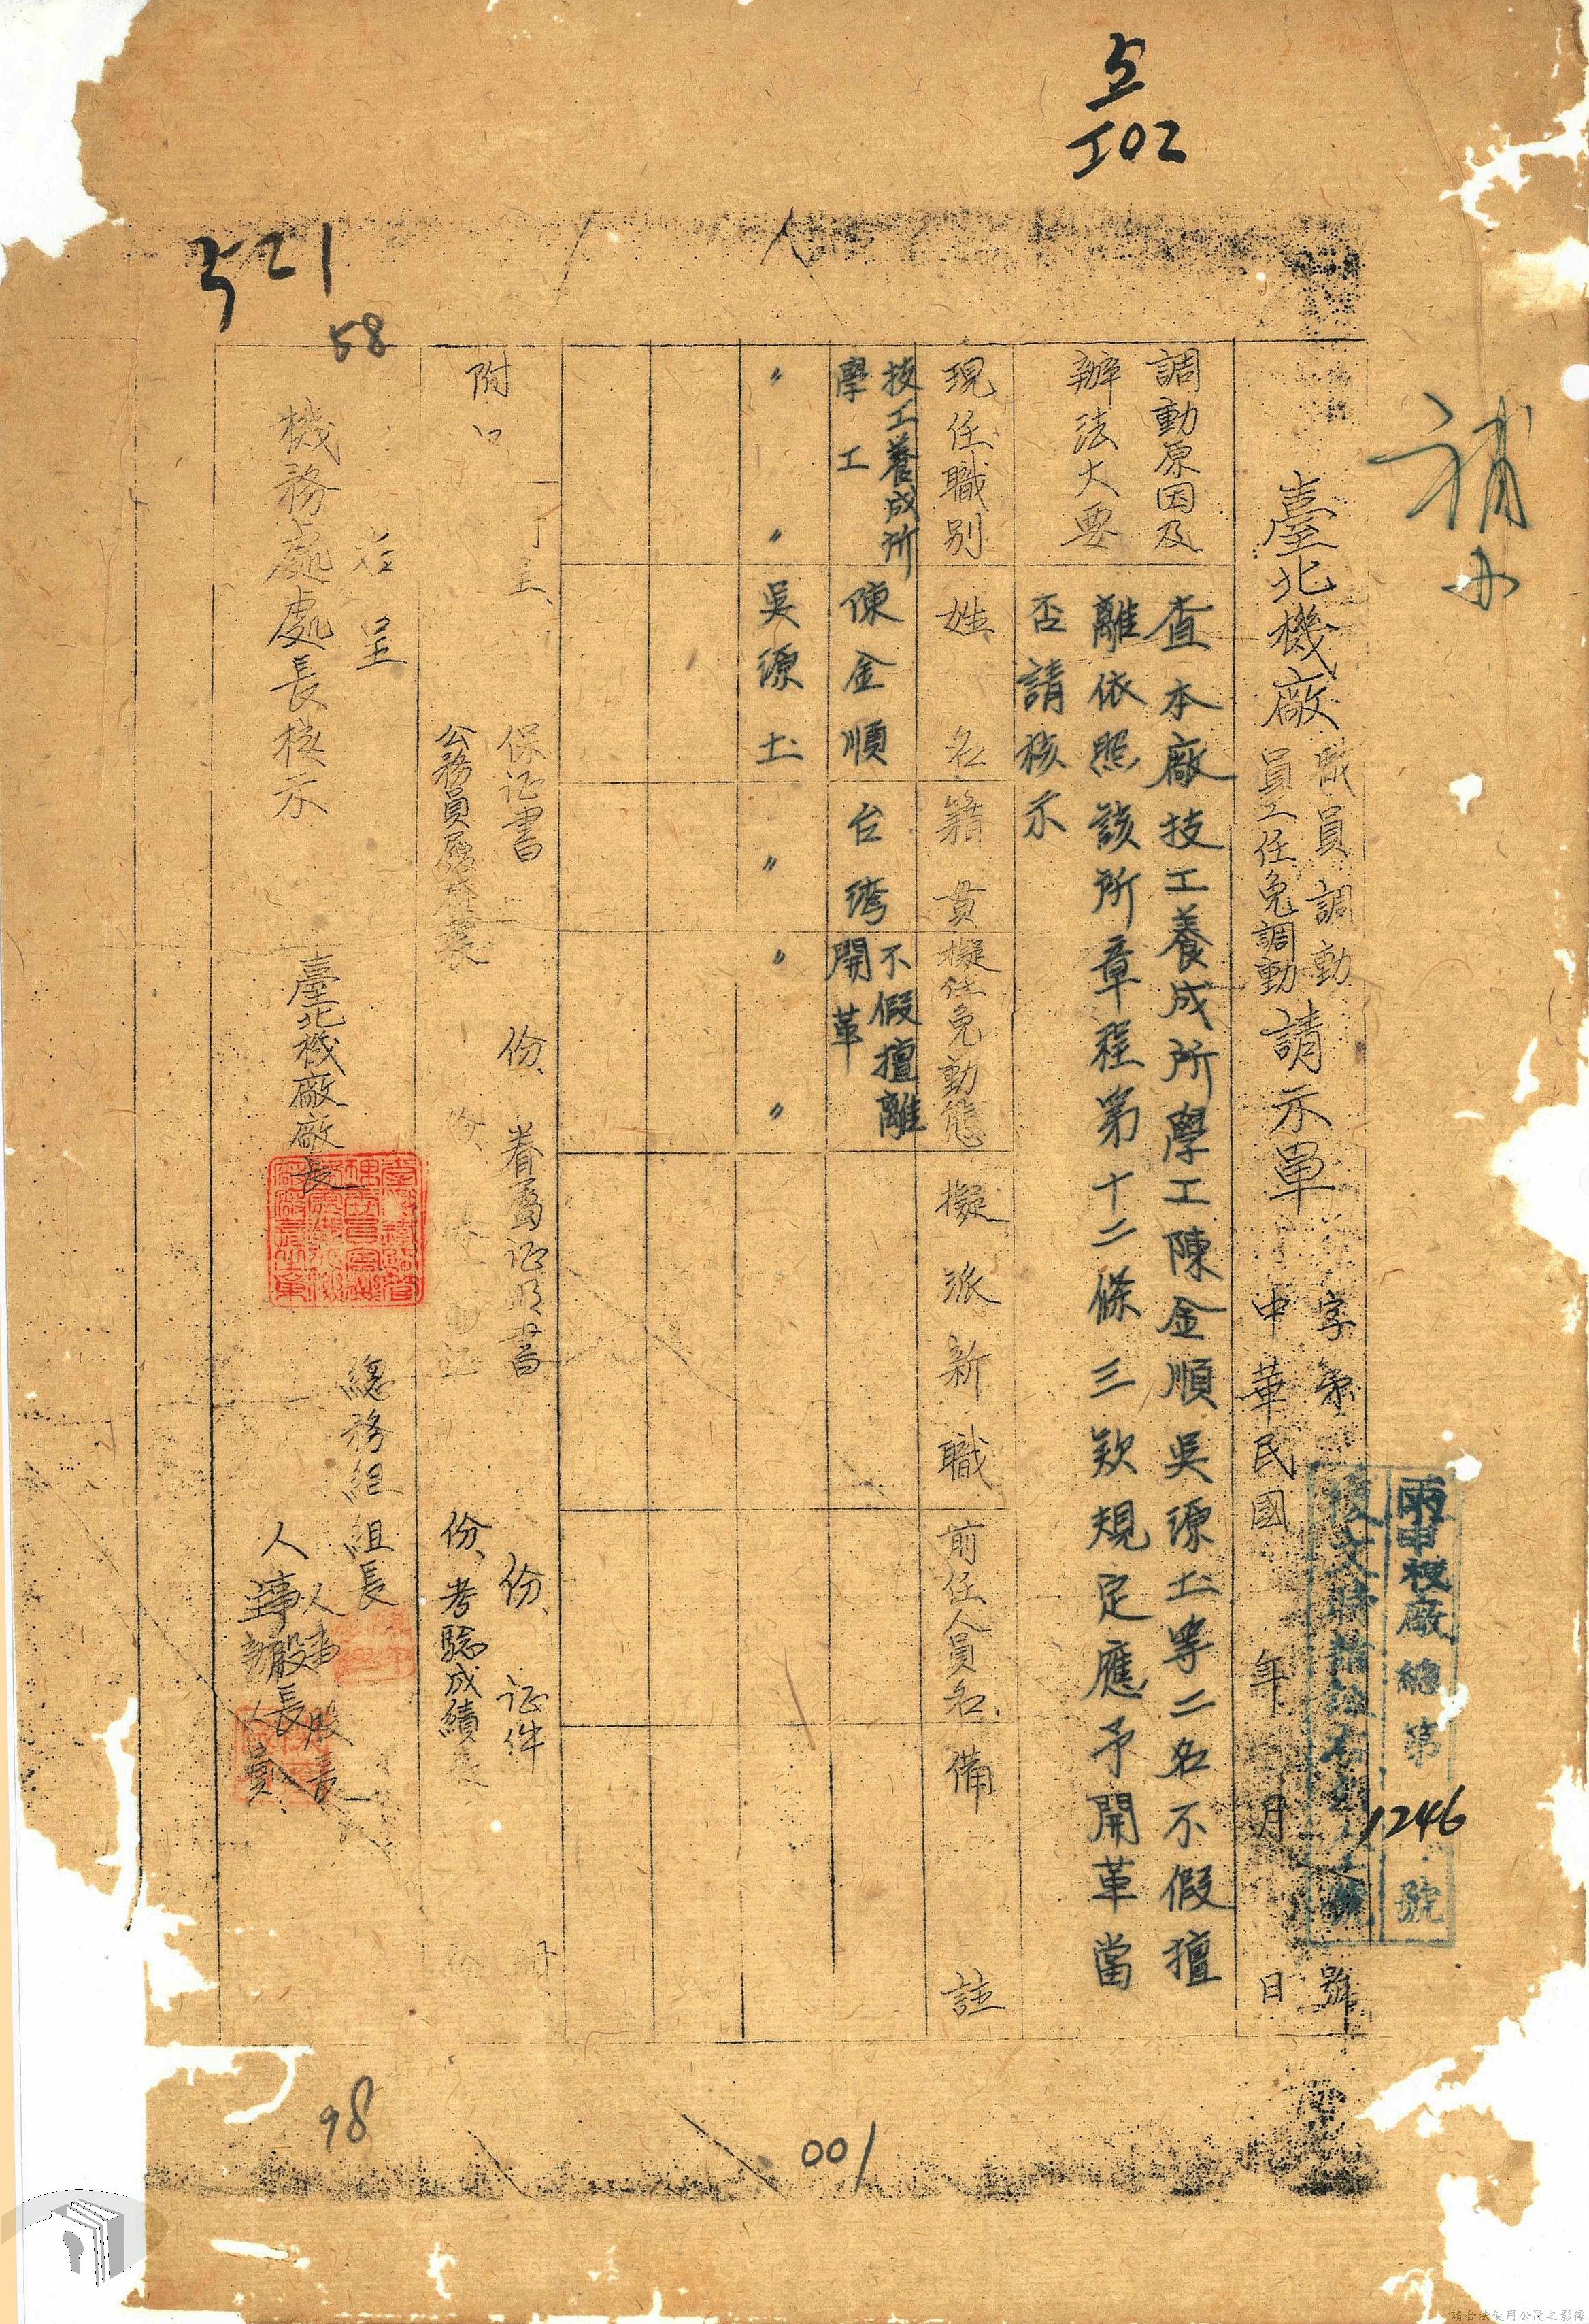 5
102
521
58
補
臺北機廠
職員調動
員工任免調動
請示單
字第 號
中華民國 年 月 日
機廠總第1246號
調動原因及
辦法大要
查本廠技工養成所學工陳金順吳源土等二名不假擅
離依照該所章程第十二條三欵規定應予開革當
否請核示
現任職別 姓名 籍貫 擬任免動態 擬派新職 前任人員名 備註
技工養成所
學工
陳金順
台灣
不假擅離
開革
〃 〃 吳源土 〃 〃 〃
附
呈
保证書 份、眷屬证明書 份、证件
公務員履歷表 份、 份、考驗成績表
右呈
機務處處長核示
臺北機廠廠長
總務組組長
人事股長
人事股長
98
001
請合法使用公開之影像